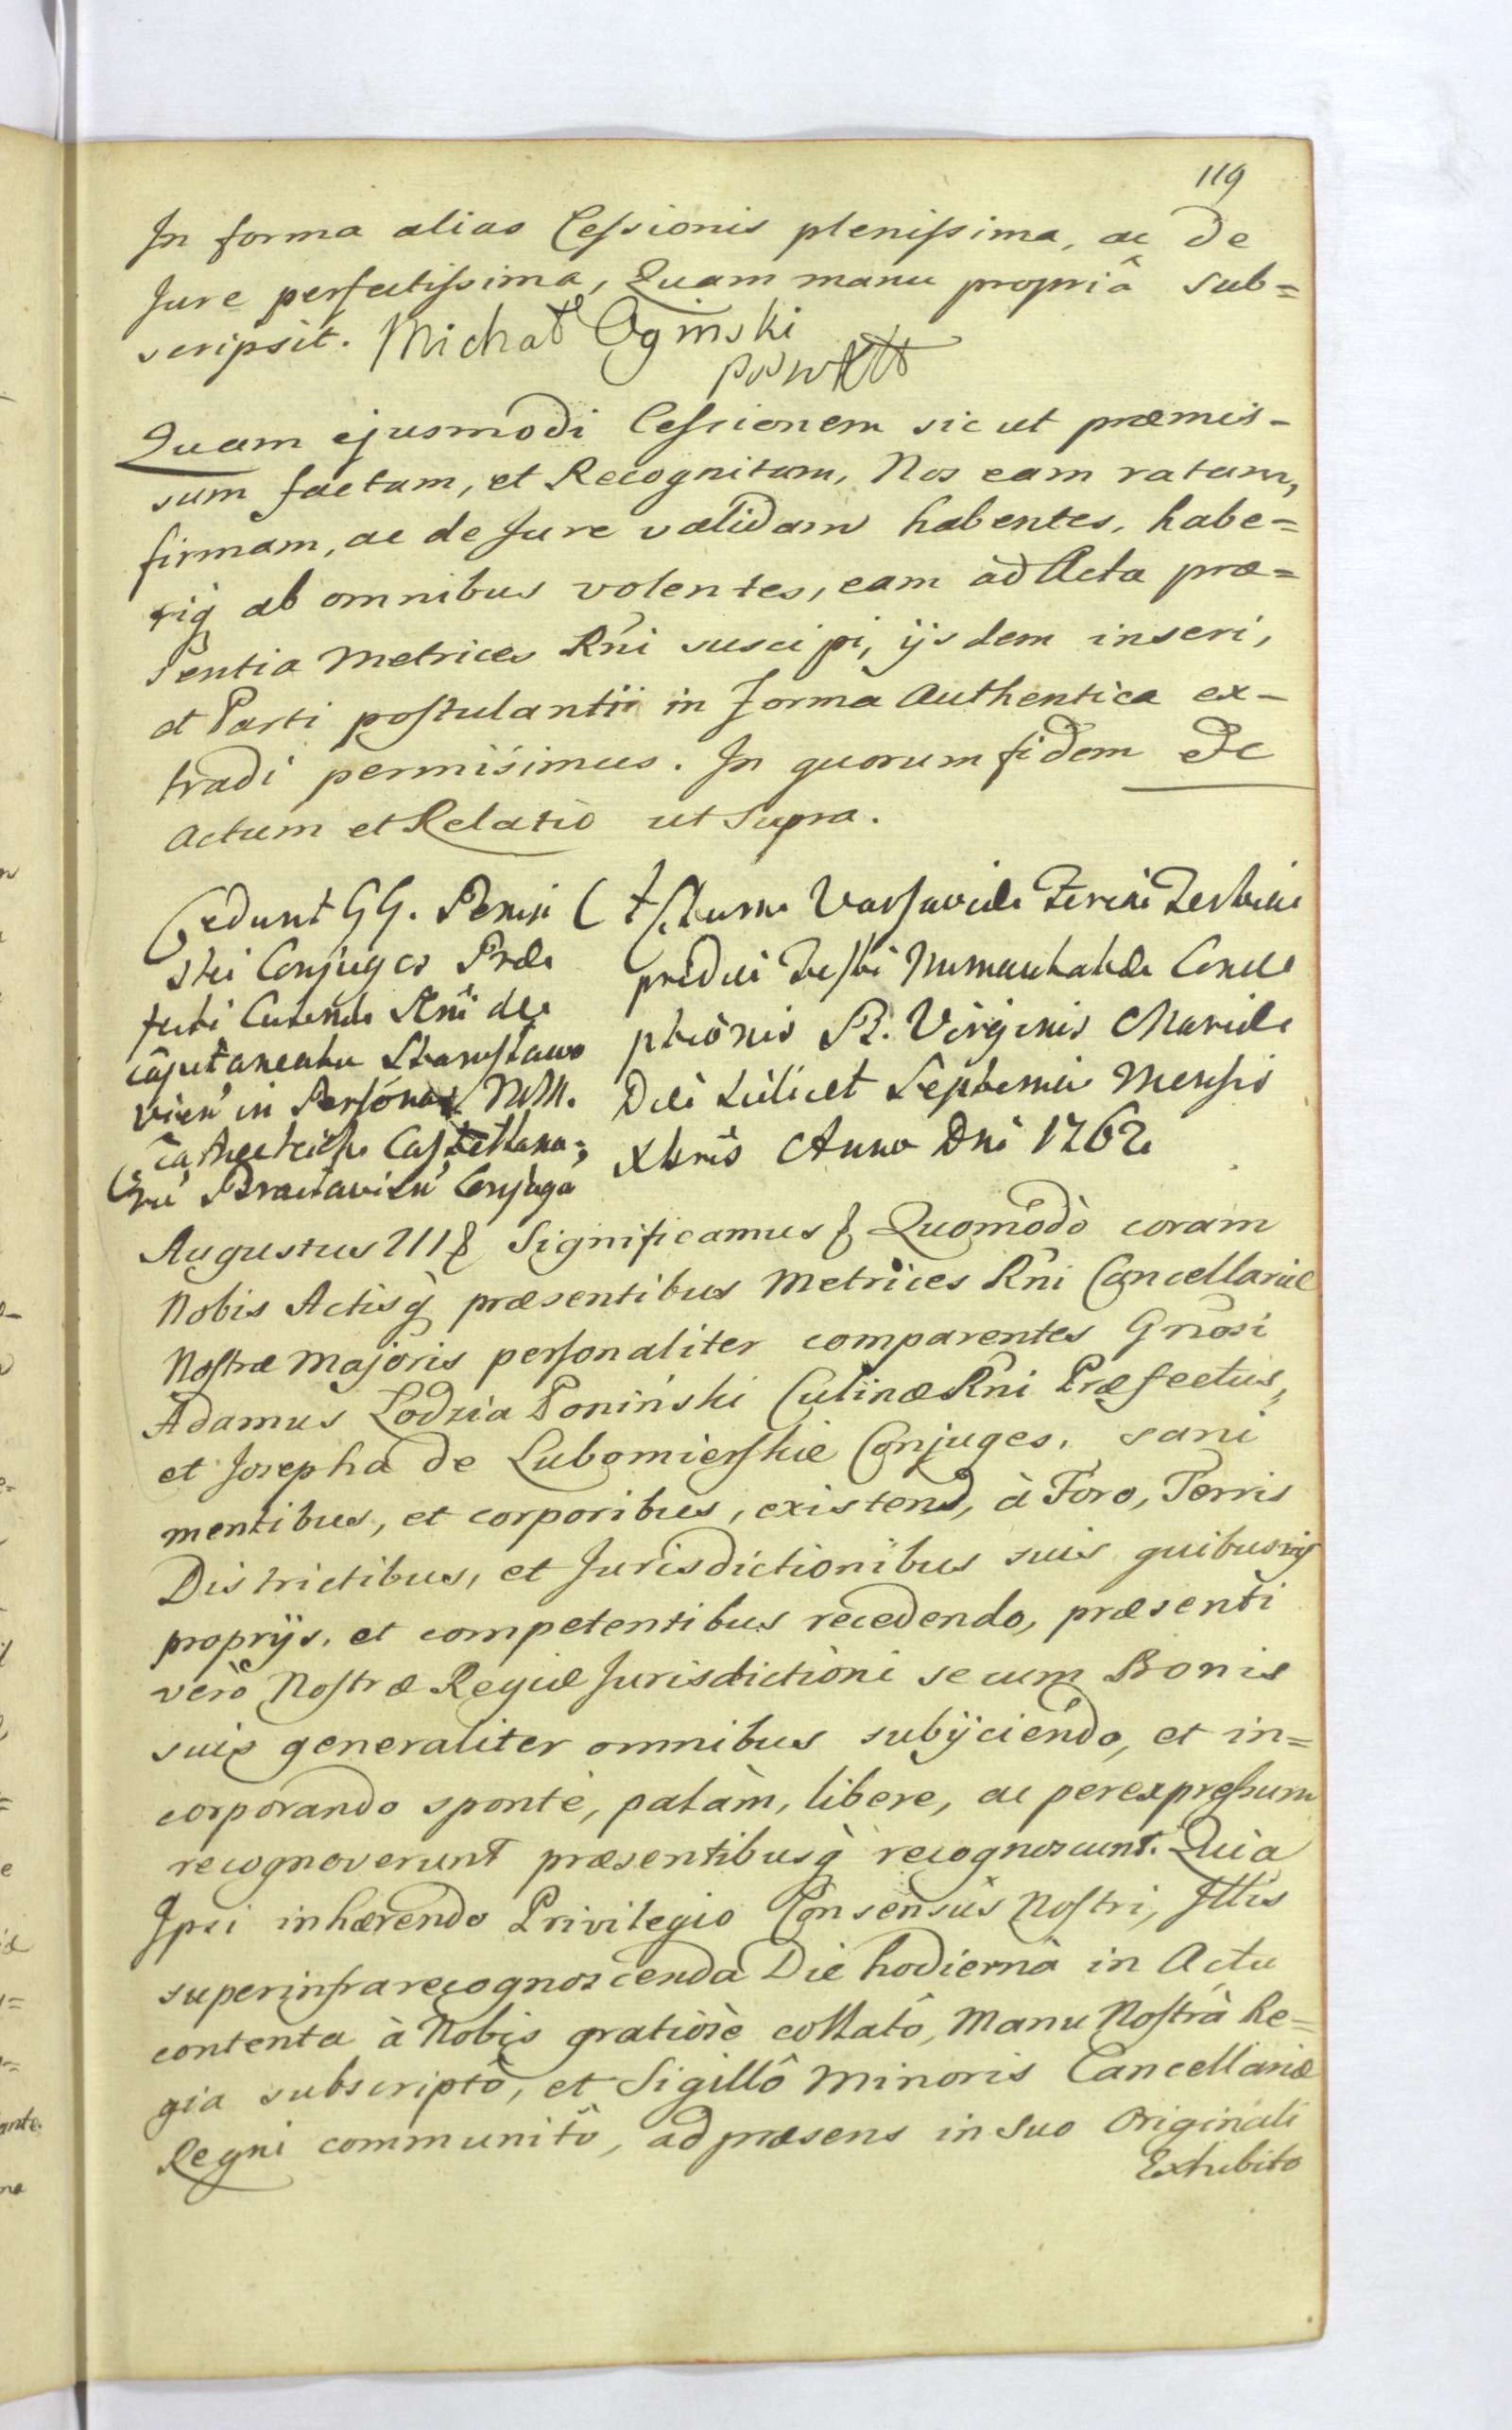 119
In forma alias Cessionis plenissima, ac de
Jure perfectissima, Quam manu propriâ sub=
scripsit. Michał Ogiński
Quam ejusmodi Cessionem sicut præmis-
sum factam, et Recognitam, Nos eam ratam,
firmam, ac de Jure validam habentes, habe=
riq̀ ab omnibus volentes, eam ad Acta præ=
sentia Metrices Rñi suscipi, ijsdem inseri,
et Parti postulantii in forma Authentica ex-
tradi permisimus. In quorum fidem etc
Actum et Relatio ut Supra.
Cedunt GG. Ponin
skei Conjuges Præ
fecti Culinæ Rñi de
Capitaneatu Stanisławo
vien in Personas MM.
Castellana=
rũ Braclavien Conjugũ
Actum Varsaviæ Feria Tertia
pridie Festi Immaculatæ Conce
ptionis B. Virginis Mariæ
Die scilicet Septima Mensis
Xbris Anno Dni 1762
Augustus III & Significamus & Quomodò coram
Nobis Actisq̀ præsentibus Metrices Rñi Cancellariæ
Nostræ Majoris personaliter comparentes Gñosi
Adamus Lodzia Poniński Culinæ Rñi Præfectus,
et Josepha de Lubomierskie Conjuges, sani
mentibus, et corporibus, existend, à Foro, Terris
Districtibus, et Jurisdictionibus suis quibusvis
proprijs, et competentibus recedendo, præsenti
verò Nostræ Regiæ Jurisdictioni se cum Bonis
suis generaliter omnibus subijciendo, et in=
corporando sponte, palàm, libere, ac per expressum
recognoverunt præsentibusq̀ recognoscunt. Quia
Ipsi inhærendo Privilegio Consensûs Nostri, Illis
super infra recognoscenda Die hodierna in Actu
contenta à Nobis gratiosè collatô, Manu Nostrâ Re=
gia subscriptô, et Sigillô Minoris Cancellariæ
Regni communitô, ad præsens in suo Originali
Exhibito